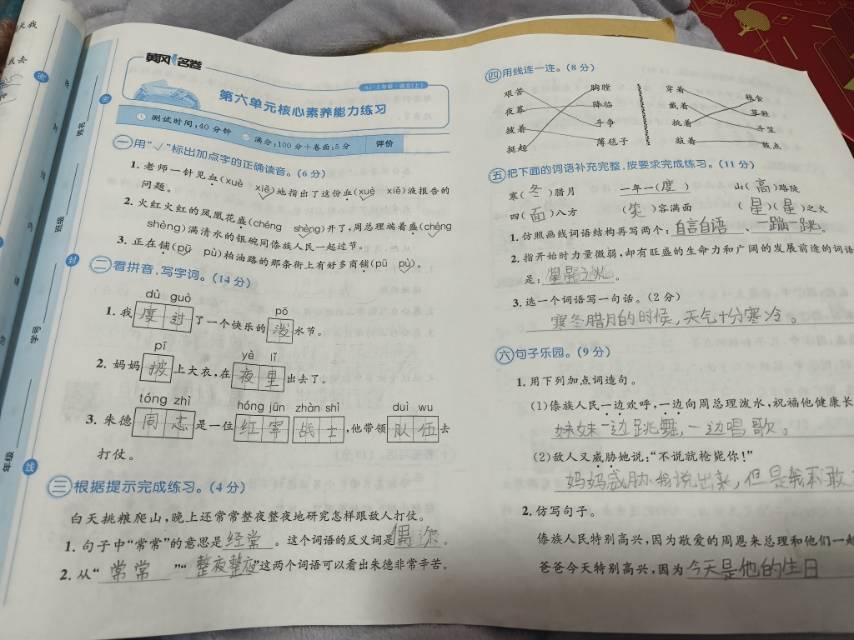 黄冈名卷
第六单元核心素养能力练习
测试时间:40分钟
满分:100分+卷面:5分
评价
一 用“√”标出加点字的正确读音。(6分)
1. 老师一针见血(xuè xiě)地指出了这份血(xuè xiě)液报告的
问题。
2. 火红火红的凤凰花盛(chéng shèng)开了,周总理端着盛(chéng
shèng)满清水的银碗同傣族人民一起过节。
3. 正在铺(pū pù)柏油路的那条街上有好多商铺(pū pù)。
二 看拼音,写字词。(14分)
dù guò
pō
1. 我度过了一个快乐的泼水节。
pī
yè lǐ
2. 妈妈披上大衣,在夜里出去了。
tóng zhì
hóng jūn
zhàn shì
duì wu
3. 朱德同志是一位红军战士,他带领队伍去
打仗。
三 根据提示完成练习。(4分)
白天挑粮爬山,晚上还常常整夜整夜地研究怎样跟敌人打仗。
1. 句子中“常常”的意思是经常。这个词语的反义词是偶尔。
2. 从“常常”“整夜整夜”这两个词语可以看出朱德非常辛苦。
四 用线连一连。(8分)
艰苦 胸膛 穿着 粮食
夜幕 降临 戴着 草鞋
披着 斗争 挑着 斗笠
挺起 薄毯子 敲着 鼓点
五 把下面的词语补充完整,按要求完成练习。(11分)
寒(冬)腊月 一年一(度) 山(高)路陡
四(面)八方 (笑)容满面 (星)(星)之火
1. 仿照画线词语结构再写两个:自言自语、一蹦一跳。
2. 指开始时力量微弱,却有旺盛的生命力和广阔的发展前途的词语
是:星星之火。
3. 选一个词语写一句话。(2分)
寒冬腊月的时候,天气十分寒冷。
六 句子乐园。(9分)
1. 用下列加点词造句。
(1)傣族人民一边欢呼,一边向周总理泼水,祝福他健康长
妹妹一边跳舞,一边唱歌。
(2)敌人又威胁她说:“不说就枪毙你!”
妈妈威胁我说出来,但是我不敢
2. 仿写句子。
傣族人民特别高兴,因为敬爱的周恩来总理和他们一起
爸爸今天特别高兴,因为今天是他的生日
姓名
班级
学号
年级
密
封
线